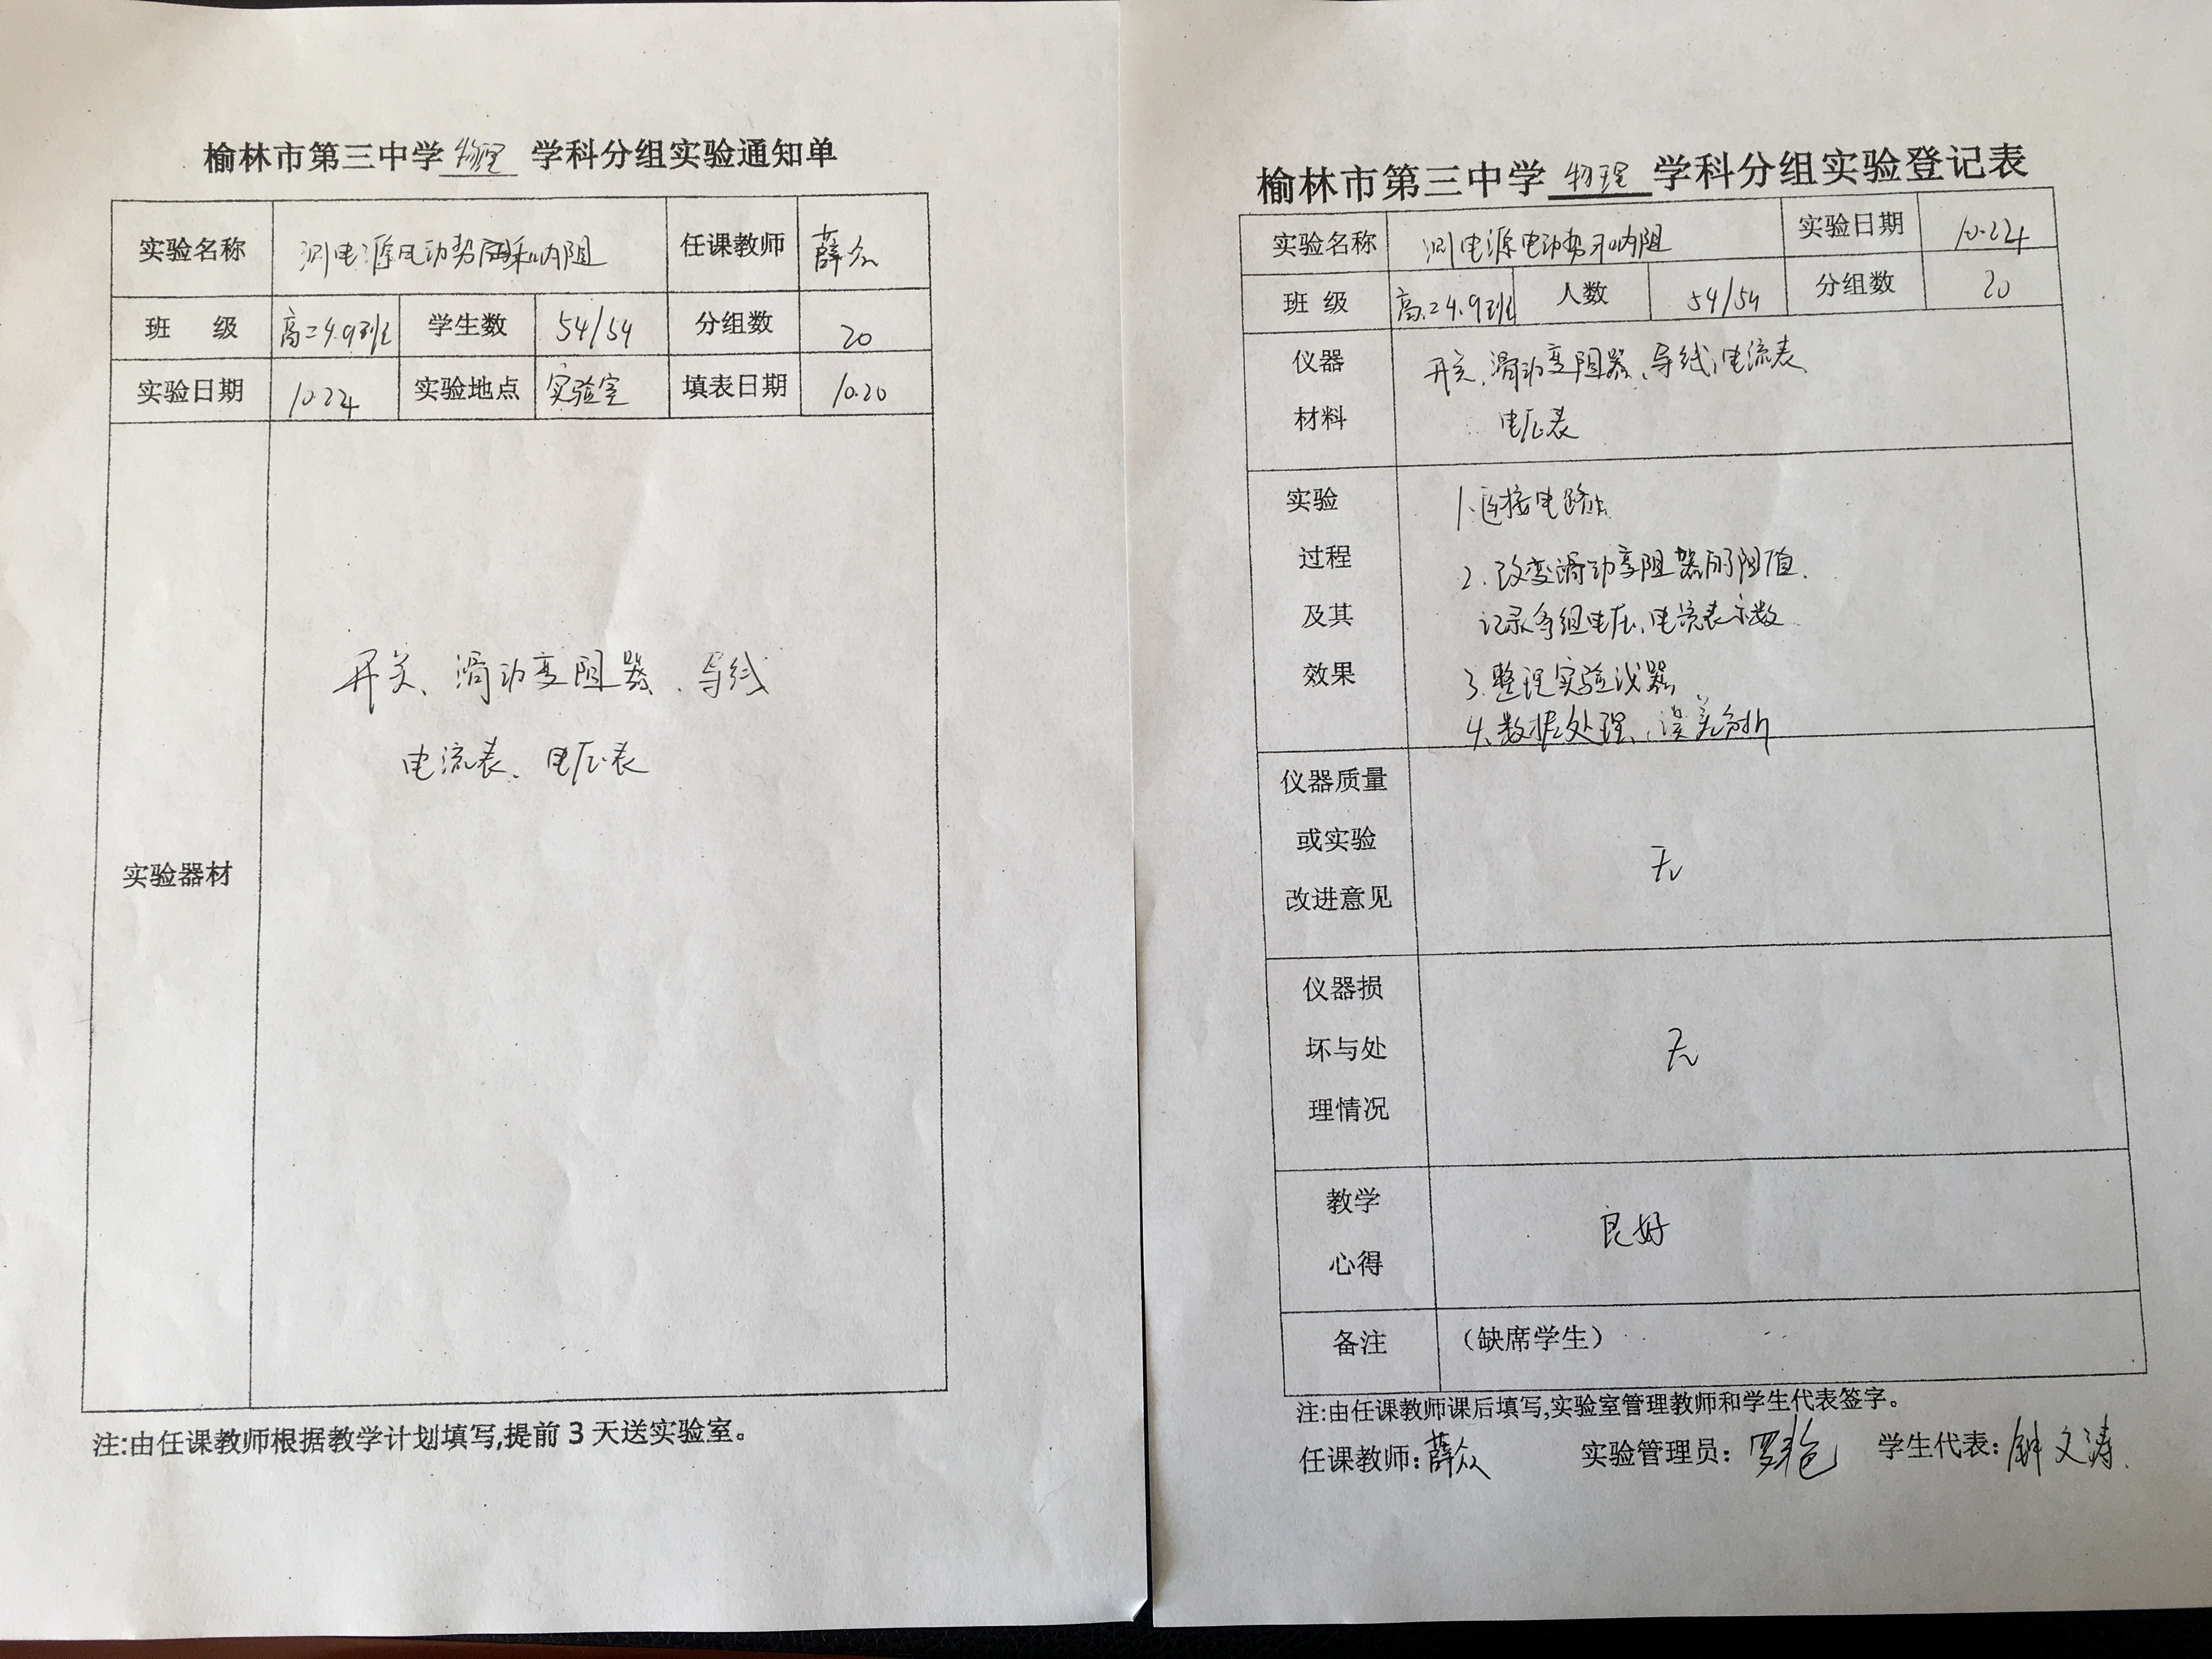 榆林市第三中学 物理 学科分组实验通知单
实验名称 测电源电动势和内阻 任课教师 薛众
班 级 高二4.9班 学生数 54/54 分组数 20
实验日期 10.24 实验地点 实验室 填表日期 10.20
实验器材
开关、滑动变阻器、导线
电流表、电压表
注:由任课教师根据教学计划填写,提前 3 天送实验室。
榆林市第三中学 物理 学科分组实验登记表
实验名称 测电源电动势和内阻 实验日期 10.24
班 级 高二4.9班 人数 54/54 分组数 20
仪器
材料
开关、滑动变阻器、导线、电流表、
电压表
实验
过程
及其
效果
1.连接电路
2.改变滑动变阻器的阻值.
记录各组电压、电流表示数.
3.整理实验仪器
4.数据处理、误差分析
仪器质量
或实验
改进意见
无
仪器损
坏与处
理情况
无
教学
心得
良好
备注 (缺席学生)
注:由任课教师课后填写,实验室管理教师和学生代表签字。
任课教师:薛众 实验管理员: 学生代表:钟文涛